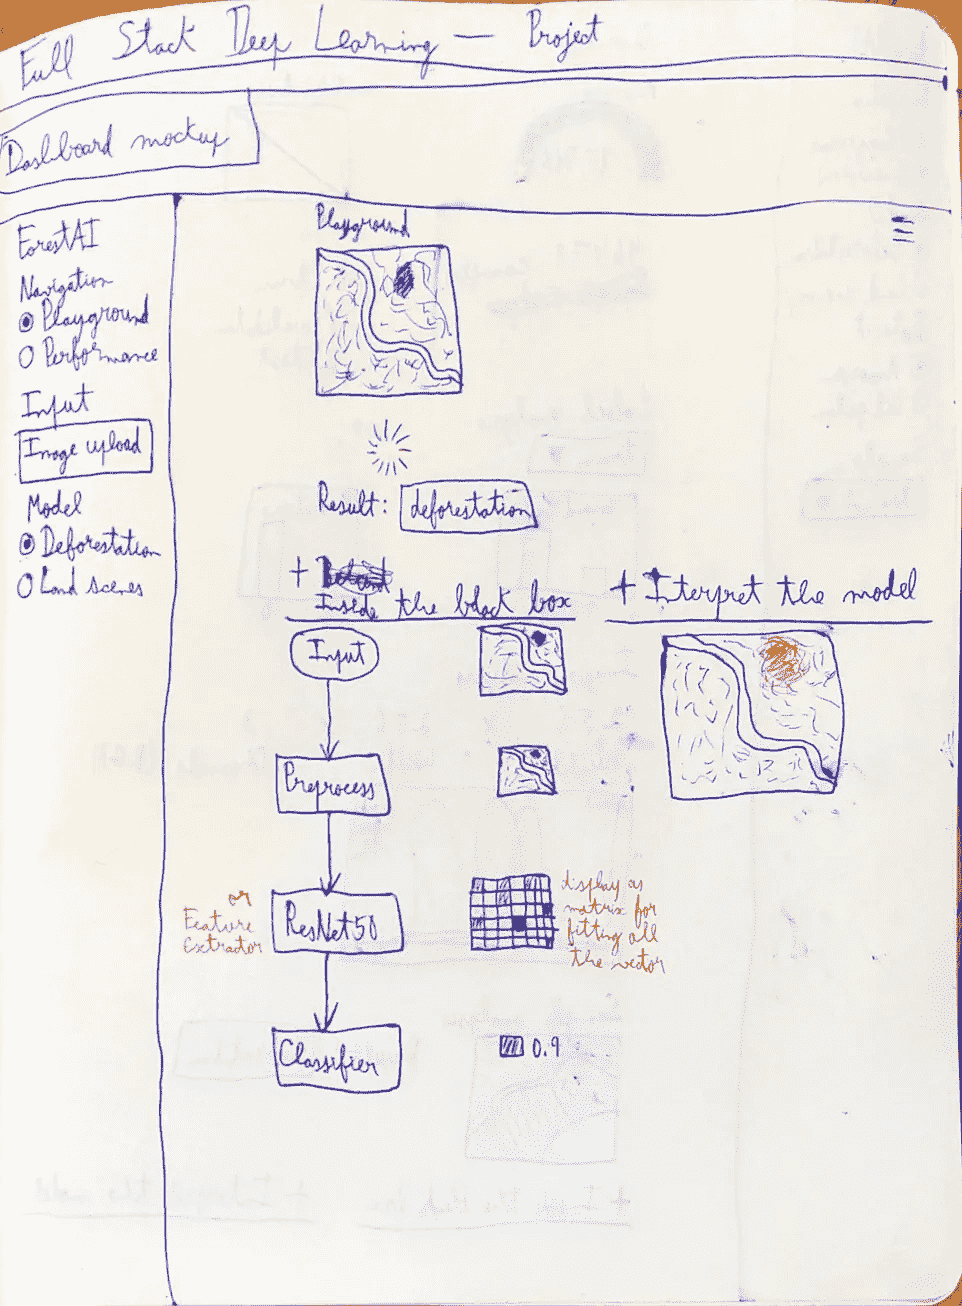 Full Stack Deep Learning — Project
Dashboard mockup
ForestAI
Navigation
Playground
Performance
Input
Image upload
Model
Deforestation
Land scenes
Playground
Result: deforestation
+ Inside the black box
Input
Preprocess
or
Feature
Extractor
ResNet50
display as
matrix for
fitting all
the vector
Classifier
0.9
+ Interpret the model